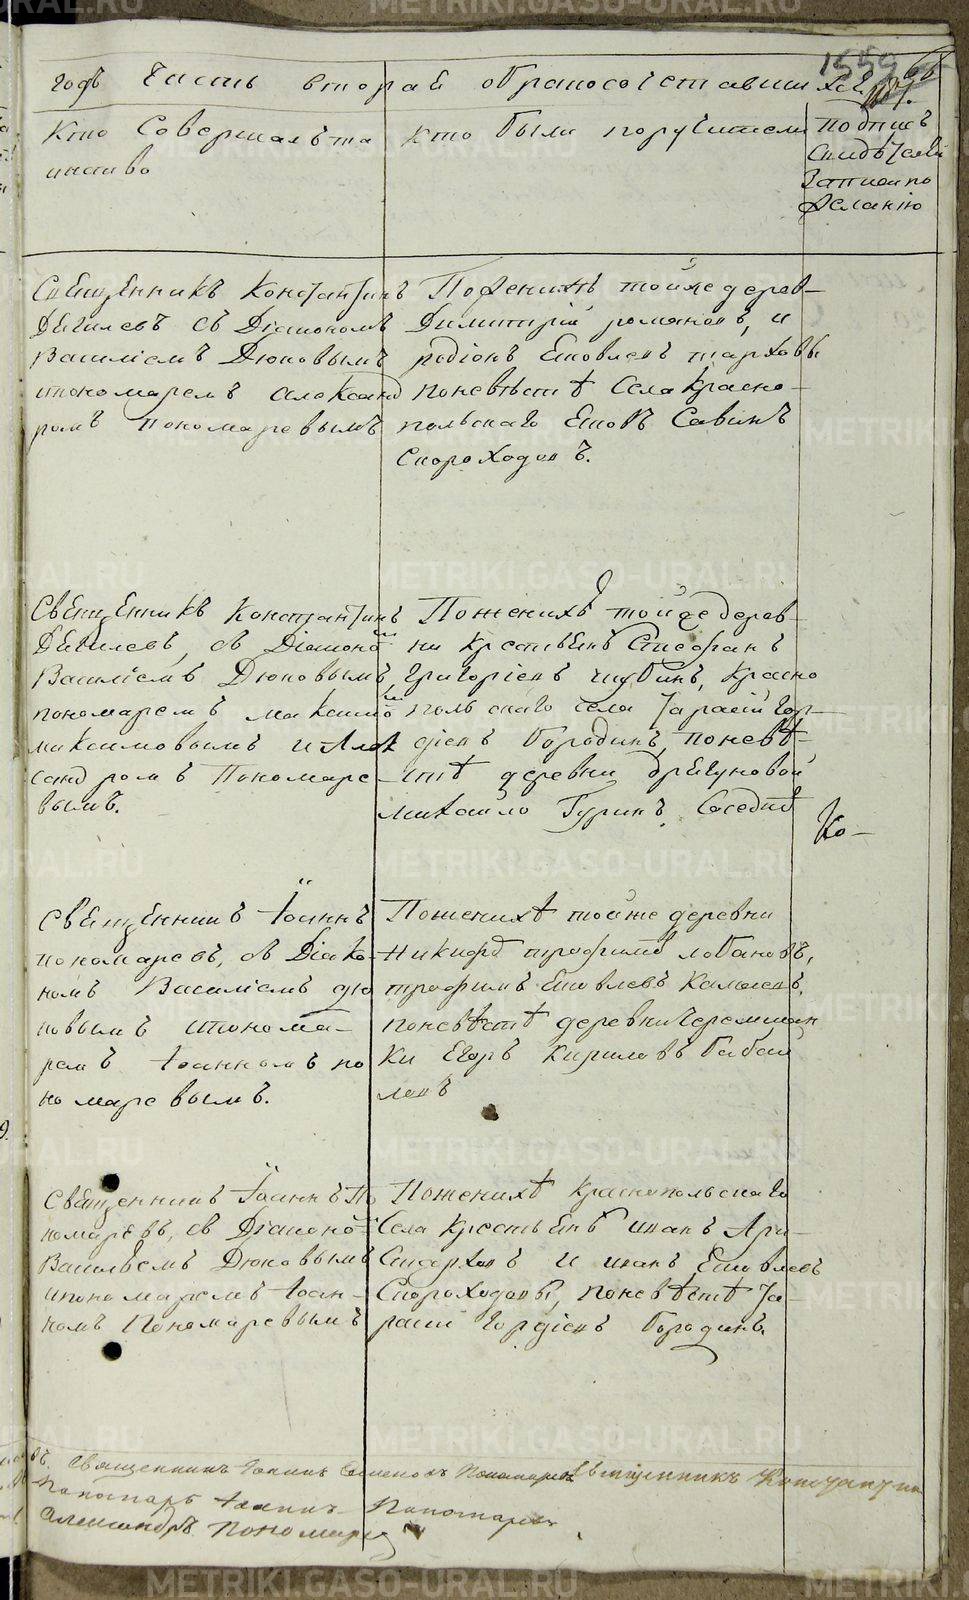 годъ Часть вторая о бракосочетавшихся
1559
Кто Совершалъ та
инство
кто были поручители
подпись
Свидѣтелей
Записи по
желанию
Священникъ Константинъ
съ Діакономъ
Василіемъ Дюковымъ
ипономаремъ Александ
ромъ Пономаревымъ
Поженихѣ тойже дерев-
Димитрій романовъ, и
родіонъ Ековлевъ
поневѣстѣ Села красно-
польскаго Ековъ Савинъ
Скороходовъ.
Священникъ Константинъ
съ Діакономъ
Василіемъ Дюковымъ,
пономаремъ максимо
максимовымъ и Алек
сандромъ Пономаре-
вымъ.
Поженихѣ тойже дерев-
ни крестьенъ Стефанъ
Григоріевъ чюбинъ, красно
польскаго села Тарасій Гор-
діевъ Бородинъ, поневѣ-
стѣ деревни
михайло Гуринъ.
Ко-
Священникъ Іоаннъ
пономаревъ, съ Діако
номъ Василіемъ дю
ковымъ ипонома-
ремъ Іоанномъ по
номаревымъ.
Поженихѣ тойже деревни
никифоръ трофимовъ лобановъ,
трофимъ Ековлевъ
поневѣстѣ деревни черемшан
ки Егоръ кириловъ бабай
ловъ
Священникъ Іоаннъ По
номаревъ, съ Діакономъ
Василіемъ Дюковымъ
ипономаремъ Іоан-
номъ Пономаревымъ
Поженихѣ краснопольскаго
Села крестьенѣ иванъ Ари-
старховъ и иванъ Ековлевъ
Скороходовы, поневѣстѣ Та-
расій Гордіевъ Бородинъ.
Священникъ Іоаннъ Семеновъ Пономаревъ Священникъ Константинъ
Пономарь Іоаннъ Пономаревъ
Александръ Пономаревъ
METRIKI.GASO-URAL.RU